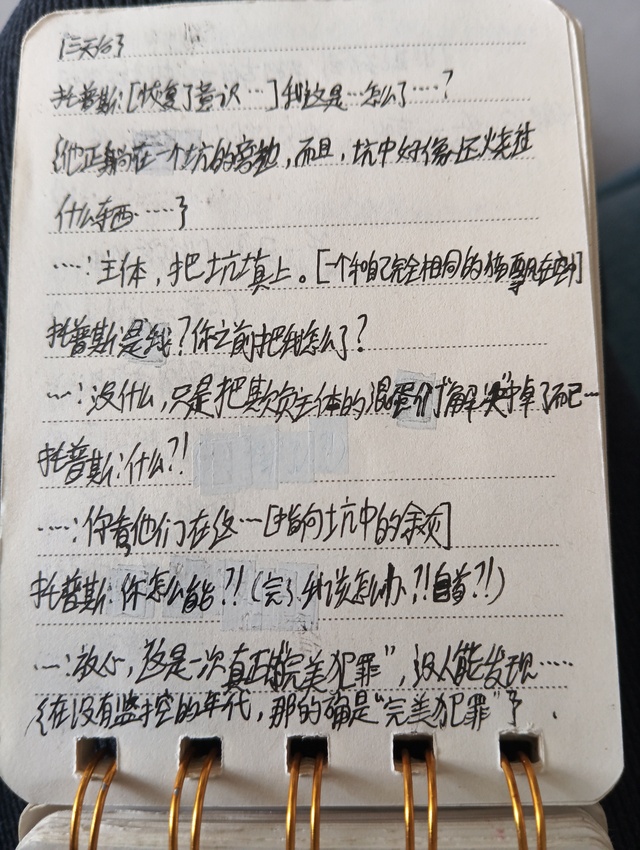 {三天后}
托普斯:[恢复了意识…]我这是…怎么了……?
{他正躺在一个坑的旁边,而且,坑中好像还烧过
什么东西……}
……:主体,把坑填上。[一个和自己完全相同的 在
托普斯:是我?你之前把我怎么了?
……:没什么,只是把欺负主体的混蛋们"解决"掉了而已…
托普斯:什么?!
……:你看他们在这…[指向坑中的余灰]
托普斯:你怎么能?!(完了,我该怎么办?!自首?!)
……:放心,这是一次真正的"完美犯罪",没人能发现……
{在没有监控的年代,那的确是"完美犯罪"}